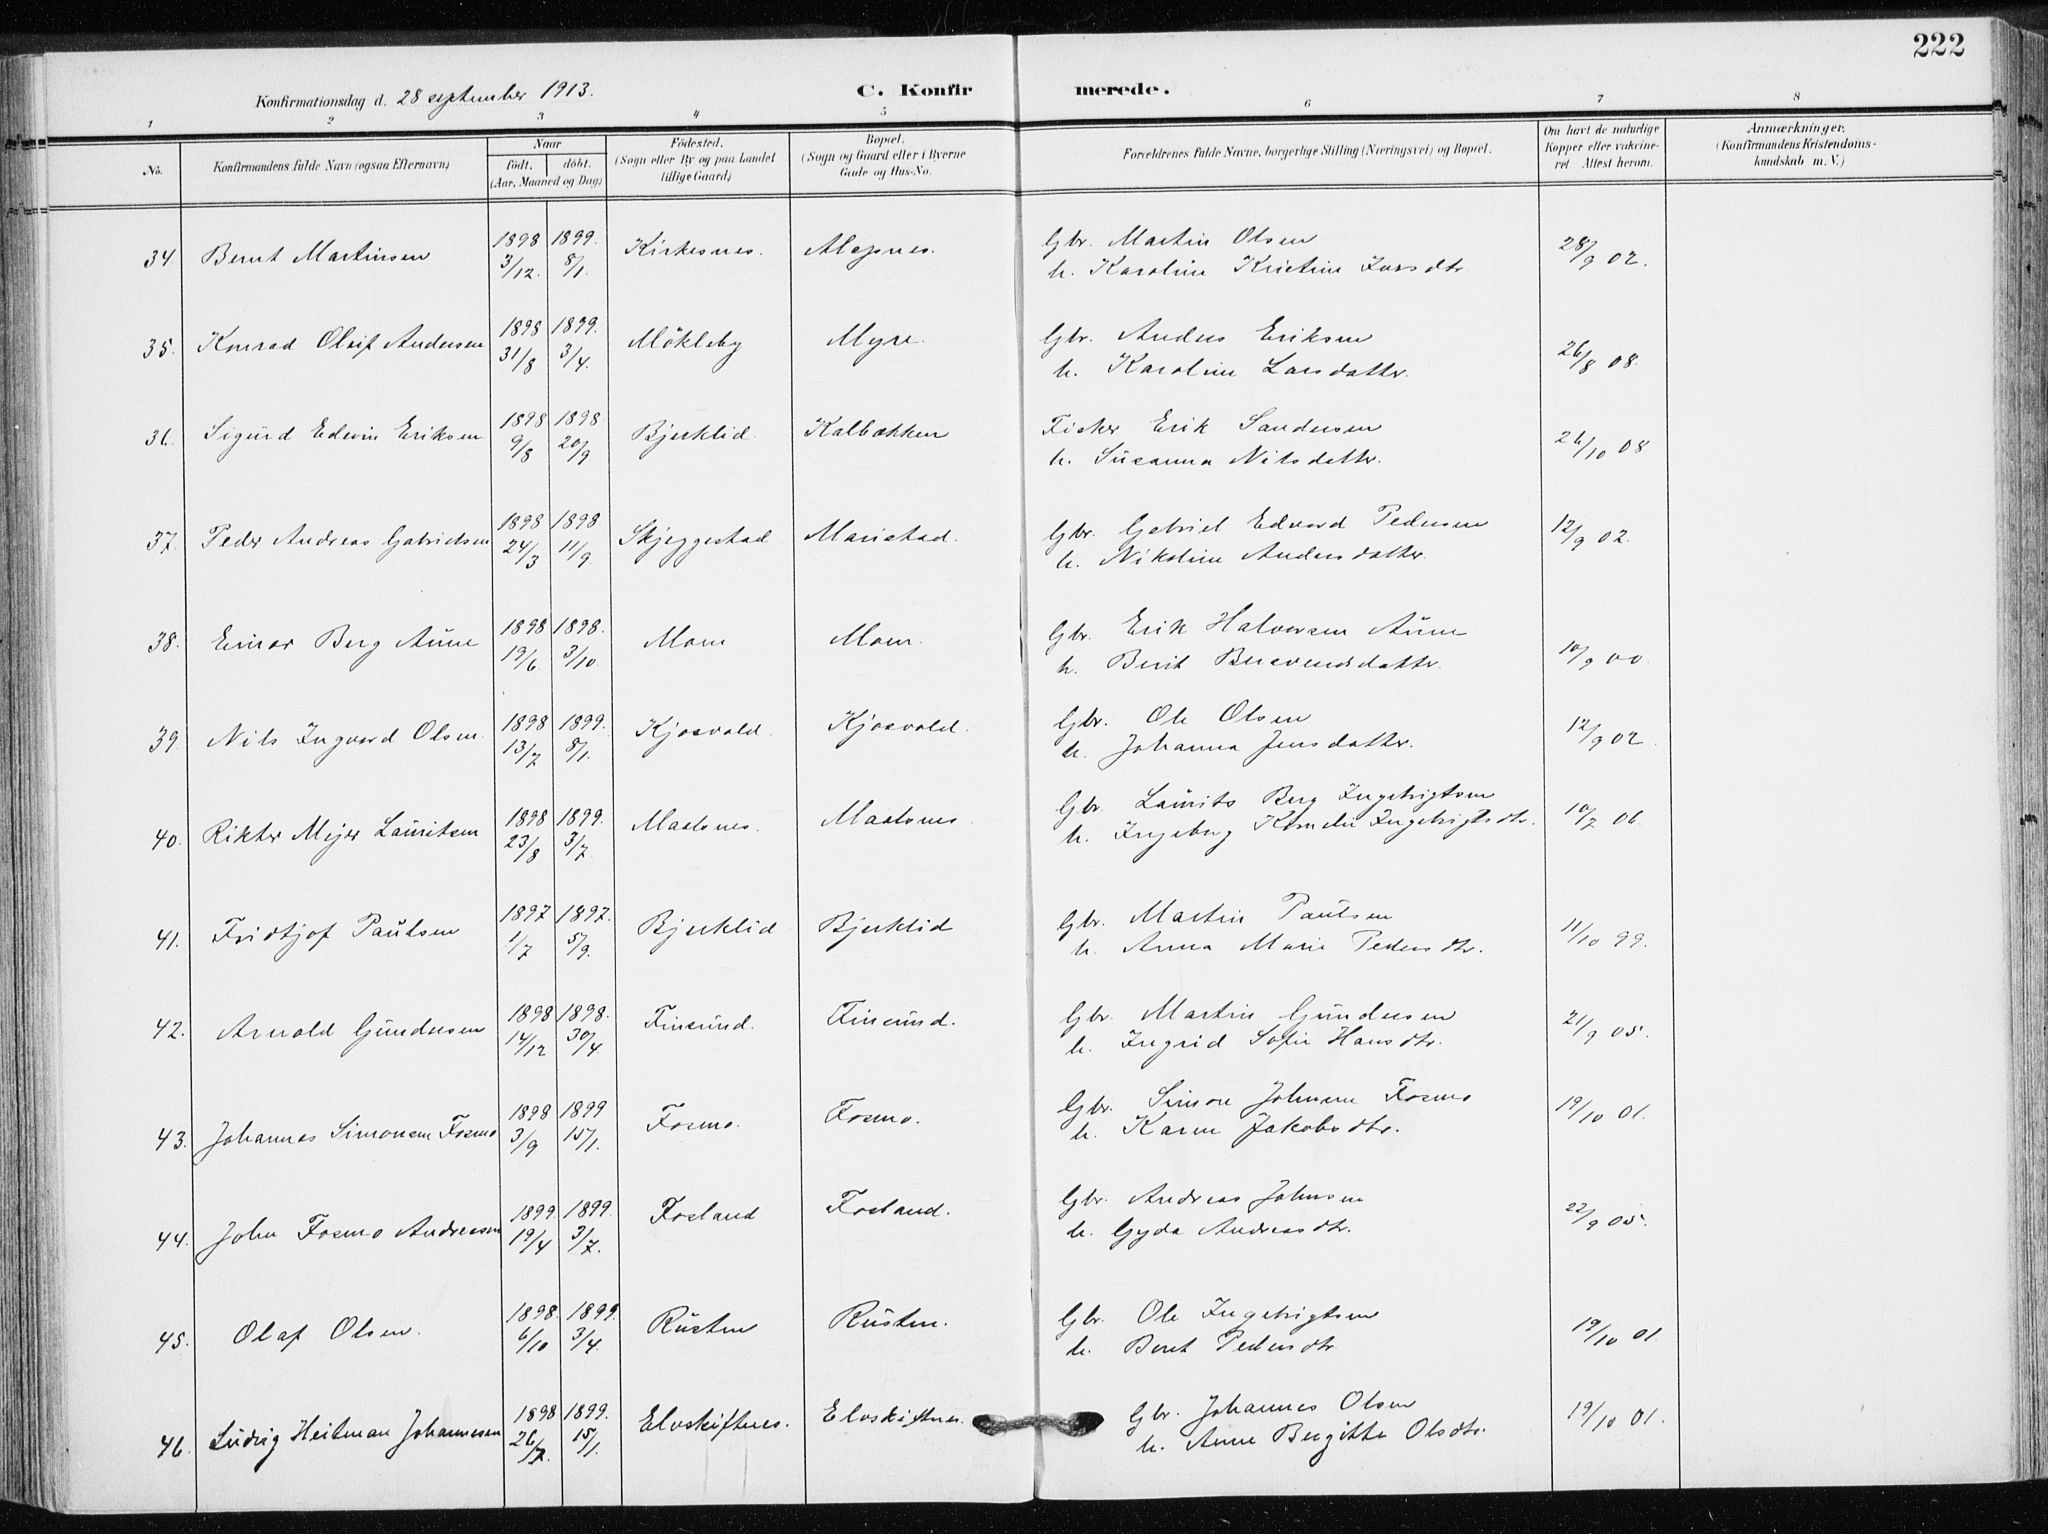 222
Konfirmationsdag d. 28 september 1913.
C. Konfirmerede.
1 2 3 4 5 6 7 8
No.
Konfirmandens fulde Navn (ogsaa Efternavn)
Naar
født. døbt.
(Aar, Maaned og Dag)
Födested.
(Sogn eller By og paa Landet
tillige Gaard)
Bopæl.
(Sogn og Gaard eller i Byerne
Gade og Hus-No.
Forældrenes fulde Navne, borgerlige Stilling (Næringsvei) og Bopæl.
Om havt de naturlige
Kopper eller vakcine-
ret Attest herom.
Anmærkninger.
(Konfirmandens Kristendoms-
kundskab m. V.)
34. Bernt Martinsen 1898 3/12. 1899. 8/1. Kirkesnes. Gbr. Martin Olsen 28/9 02.
h. Karoline Kristine
35. Konrad Oluf Andersen 1898 31/8 1899. 3/4. Mökleby Myre. Gbr. Anders Eriksen 26/8 08.
h. Karoline Larsdatter.
36. Sigurd Edvin Eriksen 1898 9/8 1898 20/9 Bjerklid. Kalbakken Fisker Erik Sandersen 26/10 08
h. Susanna Nilsdatter.
37. Peder Andreas Gabrielsen 1898 24/3 1898 11/9. Skjeggestad Maristad. Gbr. Gabriel Edvard Pedersen 12/9 02.
h. Nikoline Andersdatter.
38. Einar Berg Aune 1898 19/6 1898. 3/10. Moen Moen. Gbr. Erik Halvorsen Aune 10/9 00.
h. Berit
39. Nils Ingvard Olsen. 1898 13/7 1899. 8/1. Kjosvold. Kjosvold. Gbr. Ole Olsen 12/9 02.
h. Johanna Jensdatter.
40. Rikter Mejer Lauritsen 1898 23/8 1899. 3/7. Maalsnes. Maalsnes. Gbr. Laurits Berg Ingebrigtsen 10/7 06.
h. Ingeborg Kornelie Ingebrigtsdtr.
41. Fridtjof Paulsen 1897 1/7 1897. 5/9. Bjerklid Bjerklid Gbr. Martin Paulsen 11/10 99.
h. Anna Marie Pedersdtr.
42. Arnold Gundersen 1898 14/12 1898. 30/4. Finsund. Finsund. Gbr. Martin Gundersen 21/9 05.
h. Ingrid Sofie Hansdtr.
43. Johannes Simonsen Fosmo 1898 3/9 1899 15/1. Fosmo. Fosmo. Gbr. Simon Johnsen Fosmo 19/10 01.
h. Karen Jakobsdtr.
44. John Fosmo Andreassen 1899. 19/4 1899. 3/7. Fosland Fosland. Gbr. Andreas Johnsen 22/9 05.
h. Gyda Andreasdtr.
45. Olaf Olsen. 1898. 6/10 1899. 3/4. Rusten Rusten. Gbr. Ole Ingebrigtsen 19/10 01.
h. Beret Pedersdtr
46. Ludvig Heitman Johannesen 1898 26/7. 1899. 15/1. Elvskiftnes. Elvskiftnes. Gbr. Johannes Olsen 19/10 01.
h. Anne Bergitte Olsdtr.